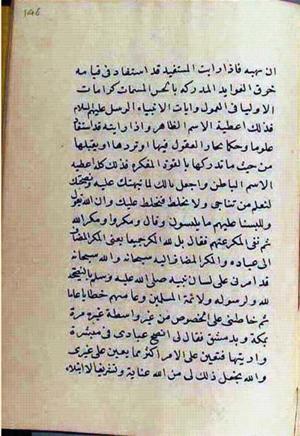 146
ان سهبه فاذا رايت المستفيد قد استفاد فى قيامه
خرق العوايد المدركه بالحس المسمات كرامات
الاوليا فى العموم وايات الانبياء الرسل عليهم السلام
فذلك اعطية الاسم الظاهر واذا رايته قد استفاد
علوما وحكما تحار العقول فيها او تردها او يقبلها
من حيث ما تدركها بالقوة المفكره فذلك كله اعطيه
الاسم الباطن واجعل بالك لما نبهتك عليه ونصحتك
لتعلم من تناجى ولا تخلط فيخلط عليك وان الله يقول
وللبسنا عليهم ما يلبسون وقال ومكروا ومكر الله
ثم نفى المكر عنهم فقال بل لله المكر جميعا يعنى المكر المضاف
الى عباده والمكر المضاف اليه سبحانه والله سبحانه
قد امرنى على لسان نبيه صلى الله عليه وسلم بالنصيحة
لله ولرسوله ولائمة المسلمين وعامتهم خطابا عاما
ثم خاطبنى على الخصوص من غير واسطة غير مرة
بمكة وبدمشق فقال لى انصح عبادى فى مبشرة
واريتها فتعين على الامر اكثر مما يعين على غيرى
والله يجعل ذلك لى من الله عناية وتشريفا لا ابتلاء